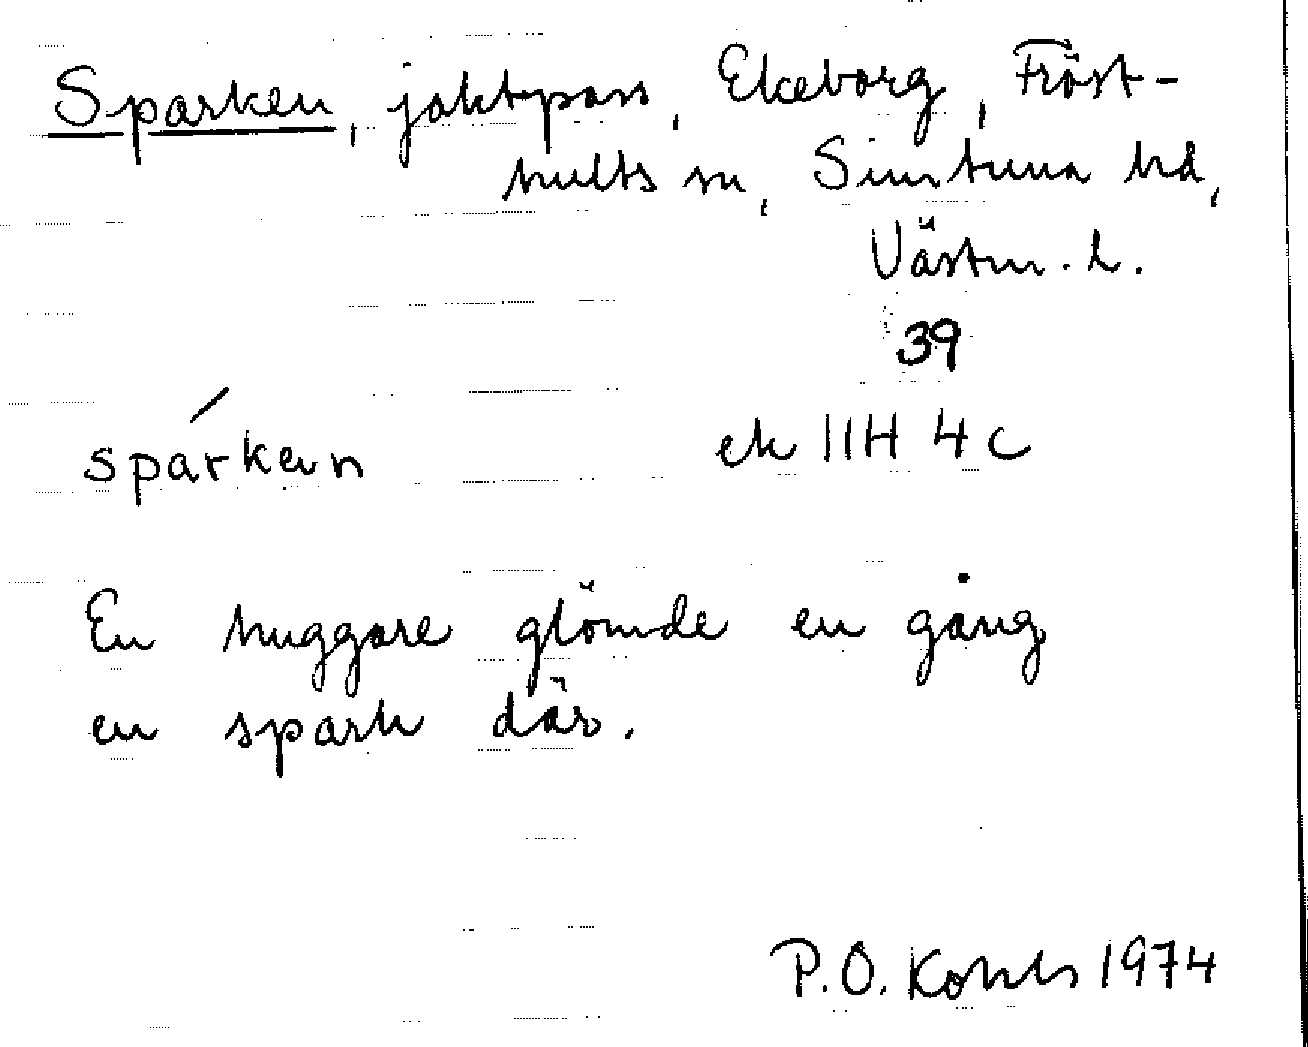 Sparken, jaktpass, Ekeborg, Fröst-
hults sn, Simtuna hd,
Västm. l.
39
sparken ek 11H 4c
En huggare glömde en gång
en spark där.
P.O. 1974